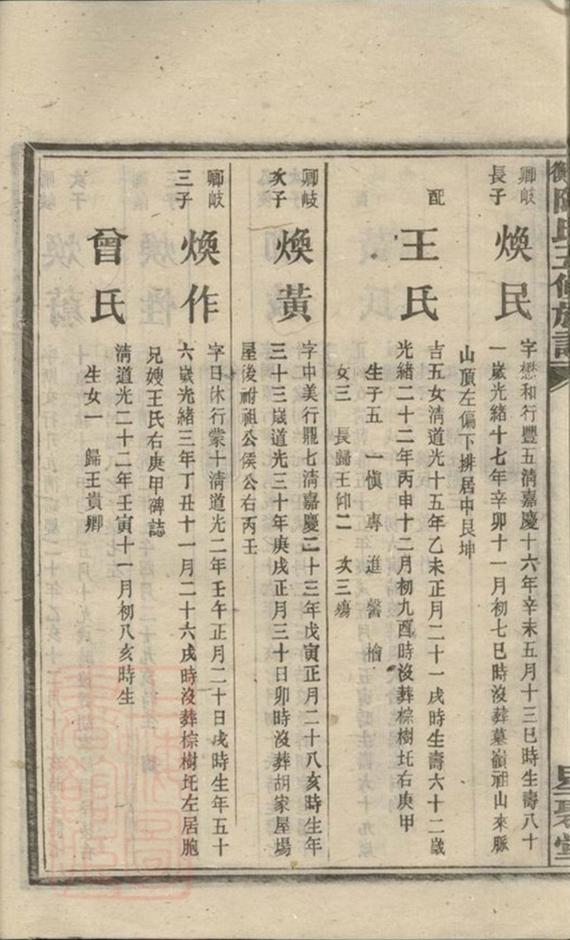 衡陽陳氏五修族譜
星聚堂
卿岐
長子
煥民
字懋和行豐五淸嘉慶十六年辛未五月十三巳時生壽八十
一歲光緒十七年辛卯十一月初七巳時沒葬墓嶺祖山來脈
山頂左偏下排居中艮坤
配
王氏
吉五女淸道光十五年乙未正月二十一戌時生壽六十二歲
光緒二十二年丙申十二月初九酉時沒葬棕樹圫右庚甲
生子五 一愼 專 進 馨 檜
女三 長歸王卹二 次三殤
卿岐
次子
煥黃
字中美行龍七淸嘉慶二十三年戊寅正月二十八亥時生年
三十三歲道光三十年庚戌正月三十日卯時沒葬胡家屋場
屋後祔祖公侯公右丙壬
卿岐
三子
煥作
字日休行蒙十淸道光二年壬午正月二十日戌時生年五十
六歲光緒三年丁丑十一月二十六戌時沒葬棕樹圫左居胞
兄嫂王氏右庚甲碑誌
曾氏
淸道光二十二年壬寅十一月初八亥時生
生女一 歸王貴卿